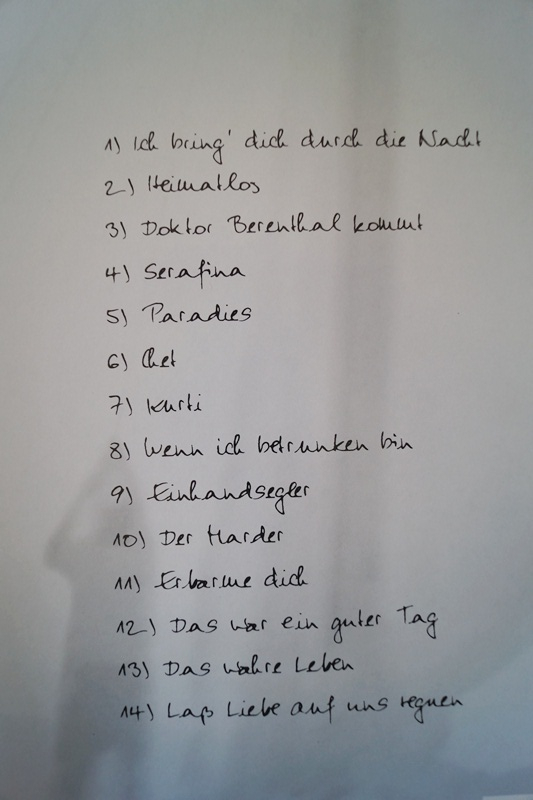 1) Ich bring' dich durch die Nacht
2) Heimatlos
3) Doktor Berenthal kommt
4) Serafina
5) Paradies
6) Chet
7) Kurti
8) Wenn ich betrunken bin
9) Einhandsegler
10) Der Harder
11) Erbarme dich
12) Das war ein guter Tag
13) Das wahre Leben
14) Laß Liebe auf uns regnen